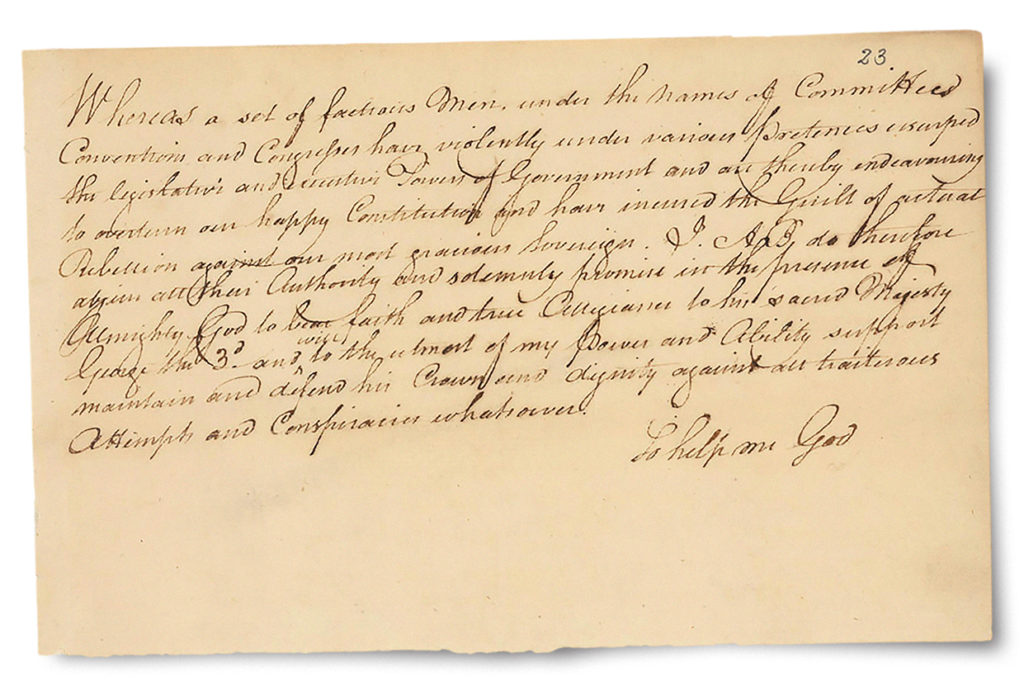 23
Whereas a set of factious Men, under the names of Committees
Conventions and Congresses have violently under various pretences usurped
the legislative and executive Powers of Government and are thereby endeavouring
to overturn our happy Constitution and have incured the Guilt of actual
Rebellion against our most gracious Sovereign. I, A.B, do therefore
abjure all their Authority and solemnly promise in the presence of
Almighty God to bear faith and true Allegiance to his sacred Majesty
George the 3d and, will to the utmost of my Power and Ability support
maintain and defend his Crown and dignity against all traiterous
Attempts and Conspiracies whatsoever.
So help me God